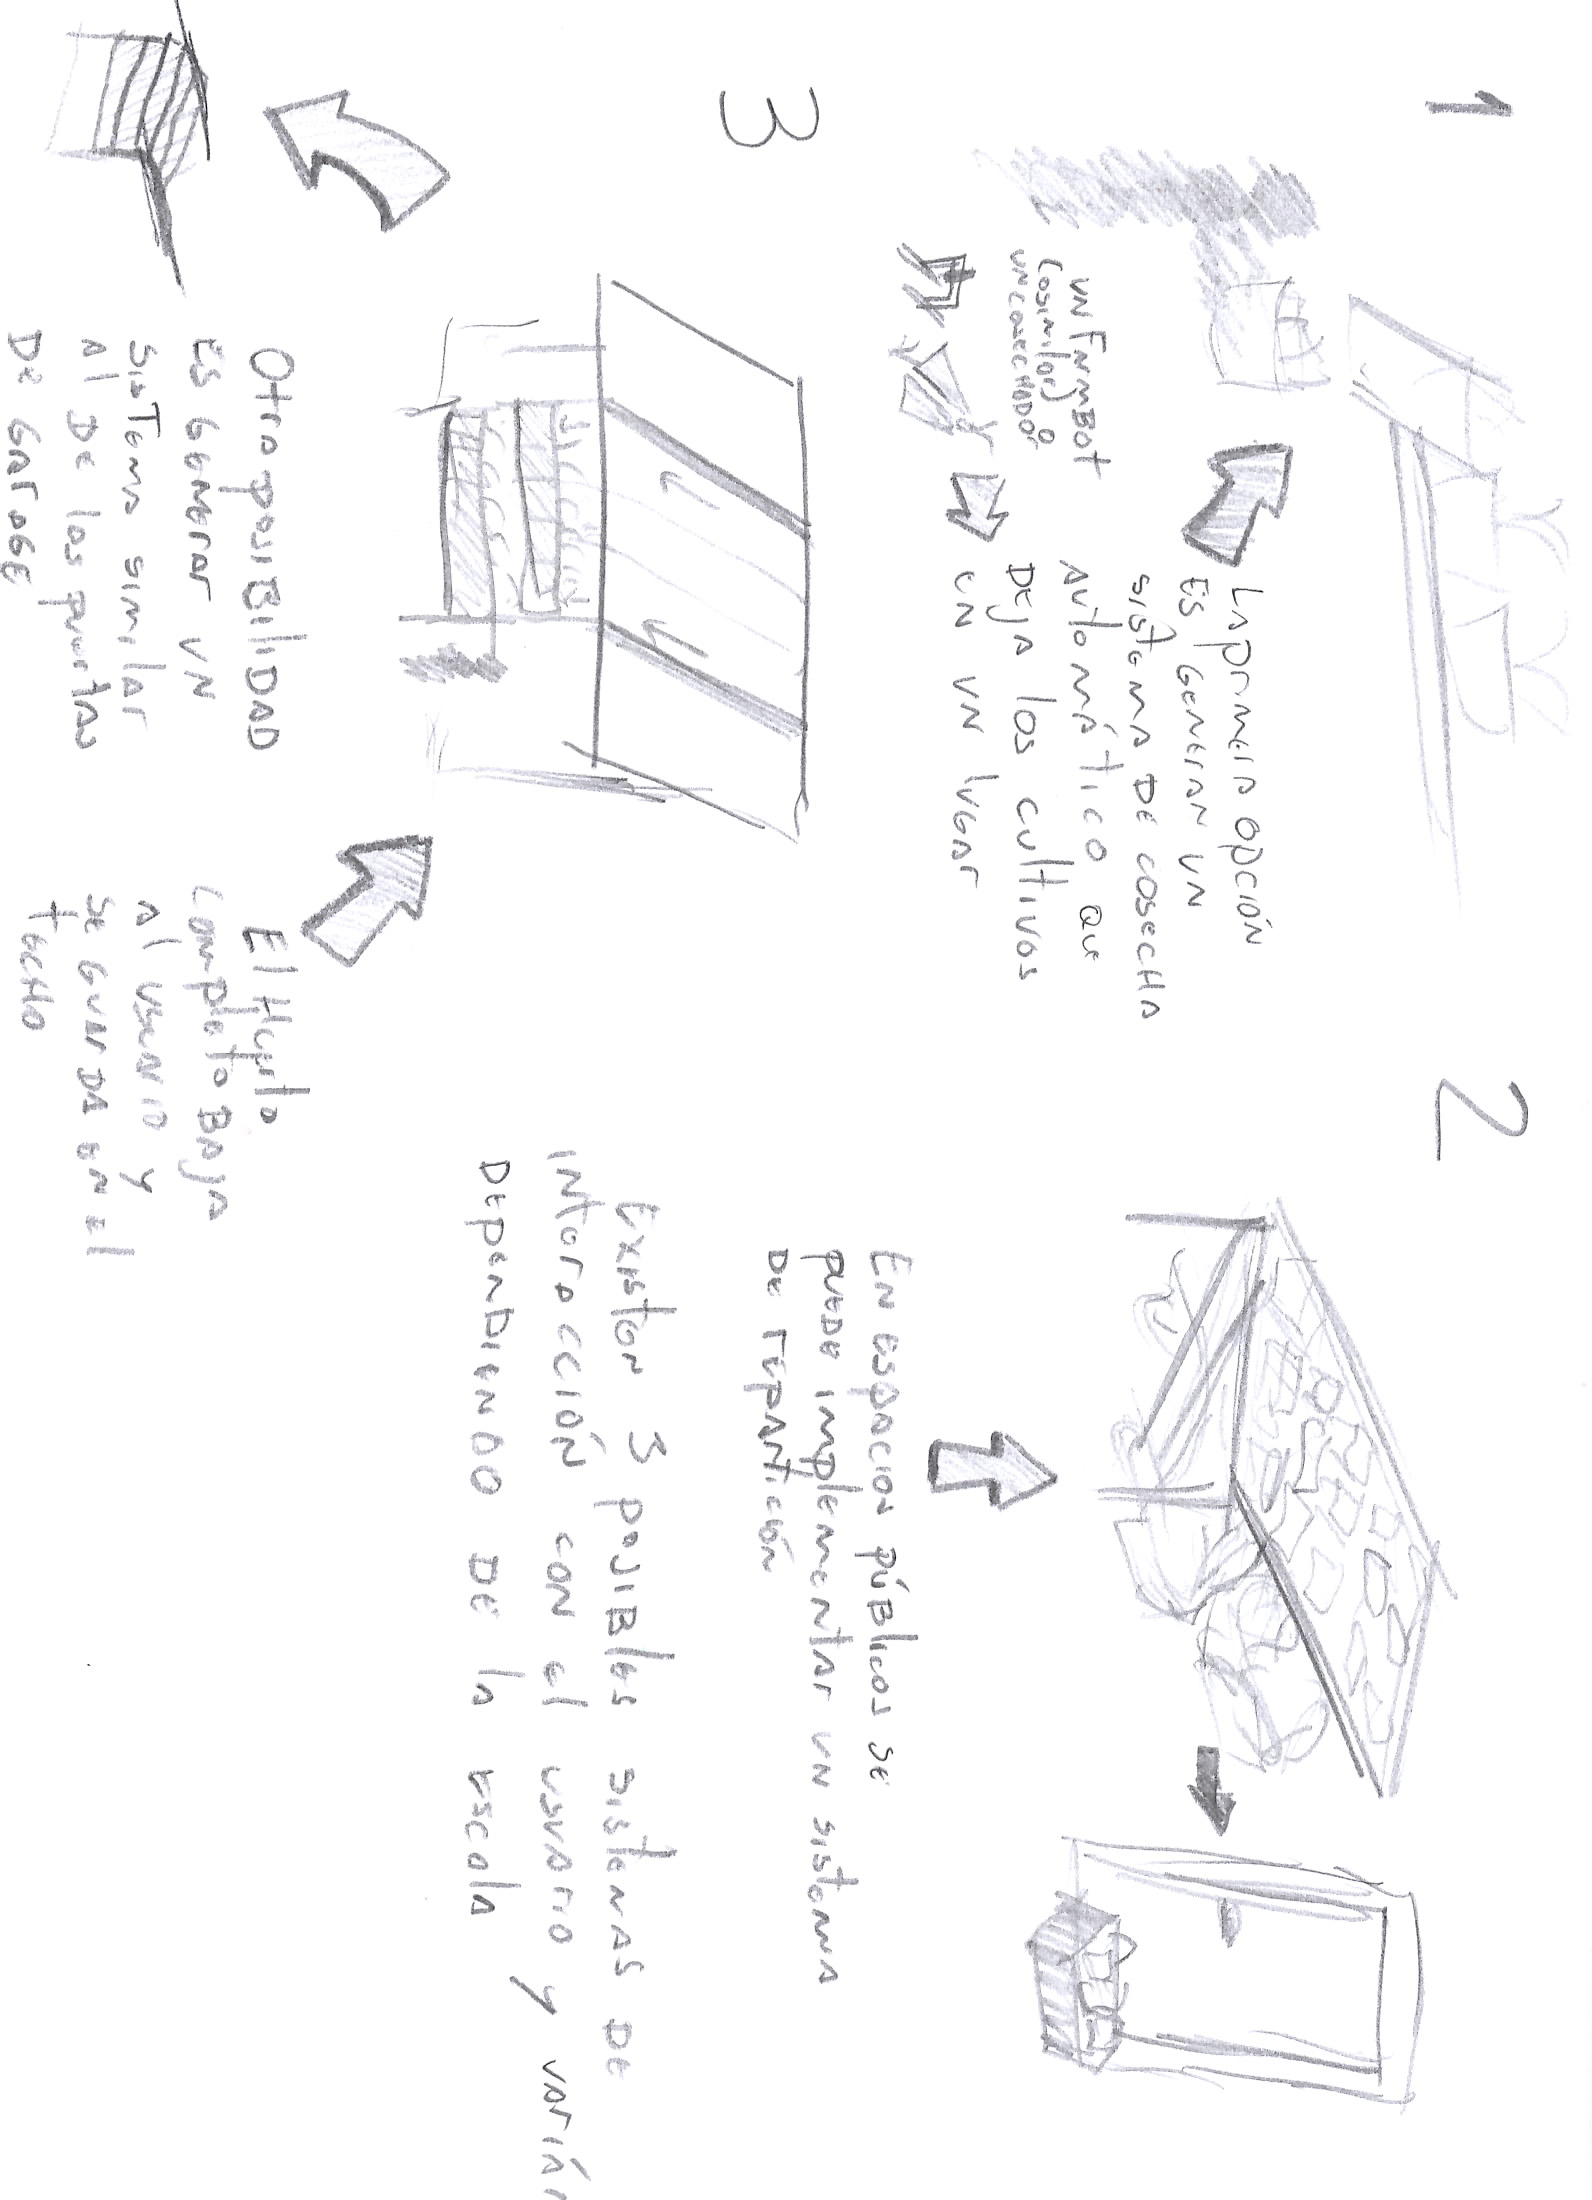 1
La primera opción
es generar un
sistema de cosecha
automático que
deja los cultivos
en un lugar
un Farmbot
(o similar) o
un cosechador
2
En espacios públicos se
puede implementar un sistema
de repartición
Existen 3 posibles sistemas de
interacción con el usuario y varían
dependiendo de la escala
3
Otra posibilidad
es generar un
sistema similar
al de las puertas
de garage
El Huerto
completo baja
al usuario y
se guarda en el
techo